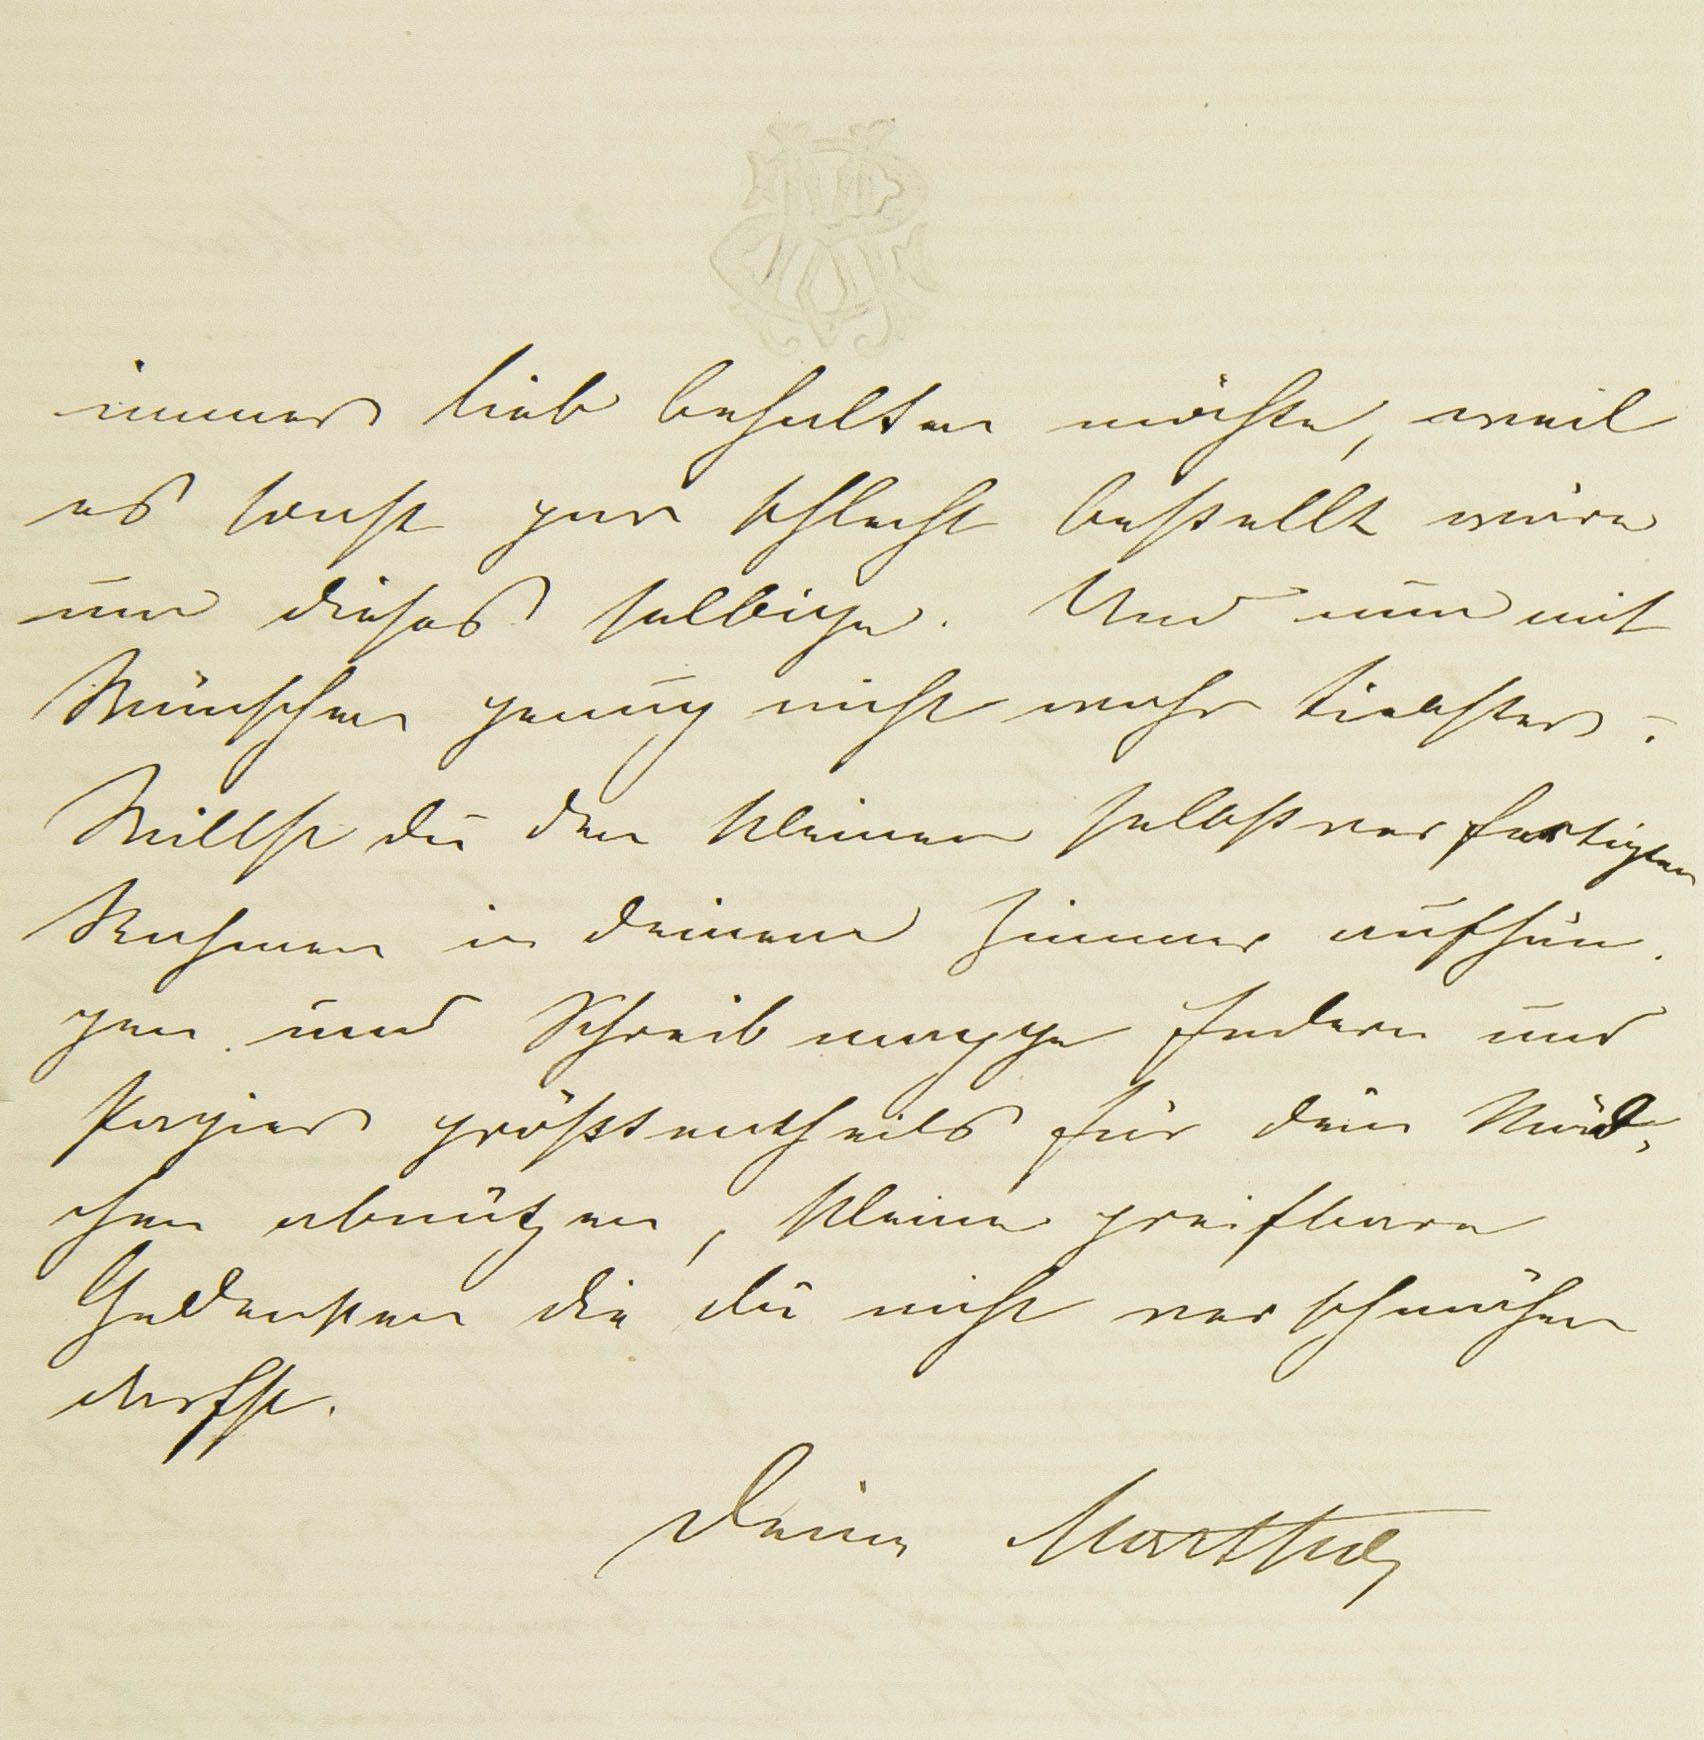 immer lieb behalten möchte, weil
es sonst gar schlecht bestellt wäre
um dieses selbige. Und nun mit
Wünschen genug nicht wahr Liebster?
Willst du den kleinen selbstverfertigten
Rahmen in deinem Zimmer aufhän-
gen und Schreibmappe Federn und
Papier größtentheils für dein Mäd-
chen abnützen, kleine greifbare
Gedenken die du nicht verschmähen
darfst.
Deine Martha